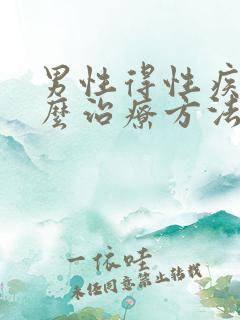 男性得性疾
麼治療方法
一依哇
未经同意禁止转载